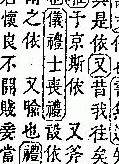 具是依又昔我往矣
于京斯依 又斧
儀禮士喪禮設依
之依 又喻也禮
君懷良不開賤妾當